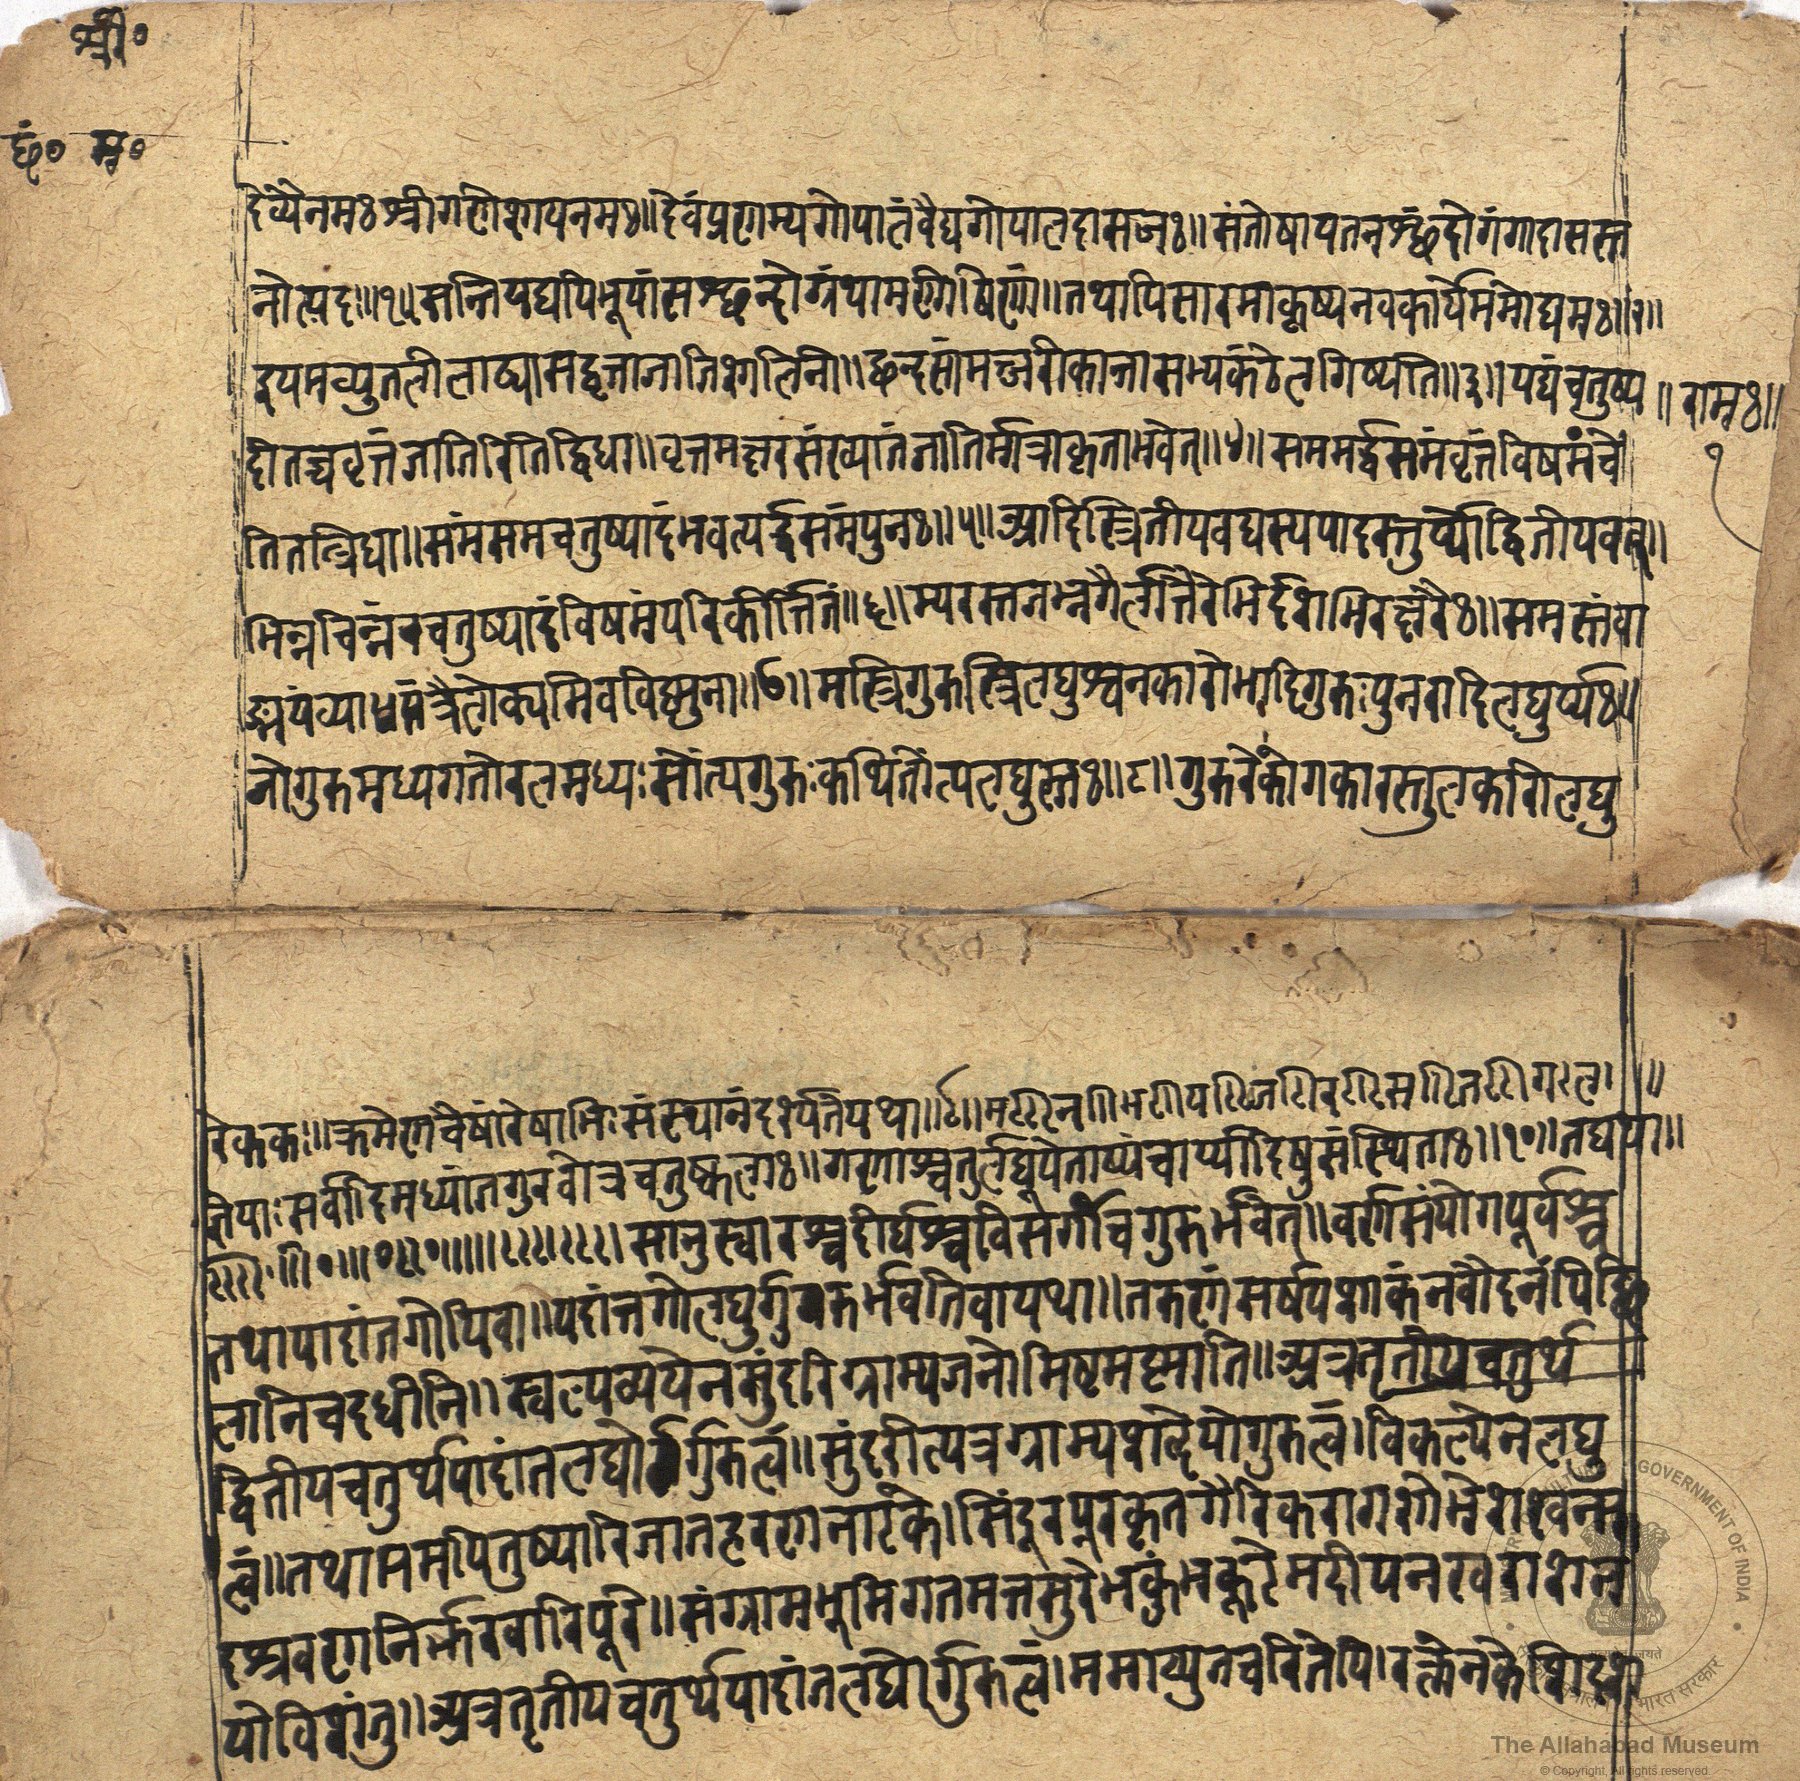 श्री॰
छं॰ म॰
देव्यैनमः श्रीगणेशायनमः॥ देवंप्रणम्यगोपालंवैद्यगोपालदासजः॥ संतोषायतनश्छंदोगंगादासस्त
नोत्यदः॥१॥ सन्तियद्यपिभूयांसश्छन्दोग्रंथामनीषिणां॥ तथापिसारमाकृष्यनवकार्थेममोद्यमः॥२॥
इयमच्युतलीलाढ्यासद्वृत्ताजातिशालिनी॥ छन्दसांमञ्जरीकान्तासभ्यकंठेलगिष्यति॥३॥ पद्यंचतुष्प
॥ रामः॥
दीतच्चवृत्तंजातिरितिद्विधा॥ वृत्तमक्षरसंख्यातंजातिर्मात्राकृताभवेत्॥४॥ सममर्द्धसमंवृत्तंविषमंचे
१
तितत्त्रिधा॥ समंसमचतुष्पादंभवत्यर्द्धसमंपुनः॥५॥ आदिस्त्रितीयवद्यस्यपादस्तुर्य्योद्वितीयवत्॥
भिन्नचिन्नंरचतुष्पादंविषमंपरिकीर्त्तितं॥६॥ म्यरस्तजभ्नगैर्लान्तैरेभिर्दशभिरक्षरैः॥ समस्तंवा
ङ्मयंव्याप्तंत्रैलोक्यमिवविष्णुना॥७॥ मस्त्रिगुरुस्त्रिलघुश्चनकारोभादिगुरुःपुनरादिलघुर्य्यः॥
जोगुरुमध्यगतोरलमध्यःसोंत्यगुरुःकथितोंत्यलघुस्तः॥८॥ गुरुरेकोगकारस्तुलकारोलघु
रेककः॥ क्रमेणचैषांरेषाभिःसंस्थानंदर्श्यतेयथा॥९॥
ज्ञेयाःसर्वादिमध्यांतगुरवोत्रचतुष्कलाः॥ गणाश्चतुर्लघूपेताष्पंचार्य्यादिषुसंस्थिताः॥१०॥ तद्यथा॥
सानुस्वारश्चदीर्घश्चविसर्गीचगुरुर्भवेत्॥ वर्णसंयोगपूर्वश्च
तथापादांतगोपिवा॥ पदांतगोलघुर्गुरुर्भवतिवायथा॥ तरुणंसर्षपशाकंनवौदनंपिच्छि
लानिचदधीनि॥ स्वल्पव्ययेनसुंदरिग्राम्यजनोमिष्टमश्नाति॥ अत्रतृतीयचतुर्थ
द्वितीयचतुर्थपादांतलघोर्गुरुत्वं॥ सुंदरीत्यत्रग्राम्यशब्देयोगुरुत्वं। विकल्पेनलघु
त्वं॥ तथाममापितुष्पारिजातहरणनाटके। सिंदूरपूरकृतगैरिकरागशोभेशश्वन्म
दश्रवणनिर्झरवारिपूरे॥ संग्रामभूमिगतमत्तसुरेभकुंभकूटेमदीयनखराशन
योविशंतु॥ अत्रतृतीयचतुर्थपादांतलघोर्गुरुत्वं। ममाच्युतचरितेपि।
The Allahabad Museum
© Copyright, All rights reserved.